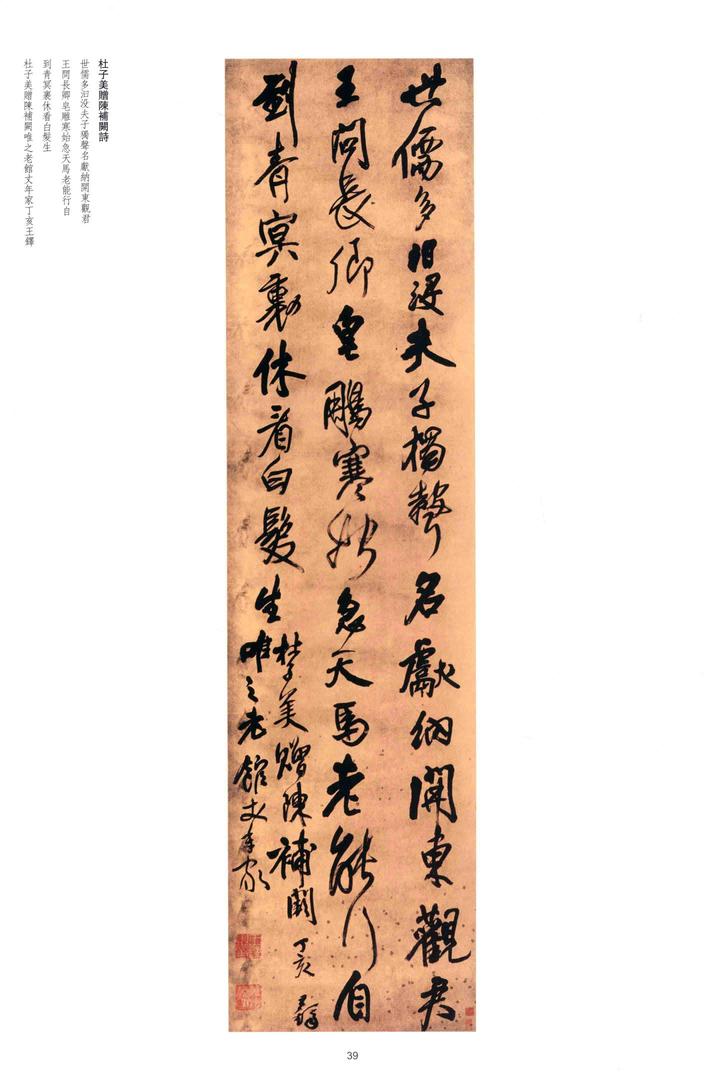 世儒多汩没夫子獨聲名獻納開東觀君
王問長卿皂鵰寒始急天馬老能行自
到青冥裏休看白髮生
杜子美贈陳補闕
唯之老館丈年家
丁亥王鐸
杜子美贈陳補闕詩
世儒多汩没夫子獨聲名獻納開東觀君
王問長卿皂雕寒始急天馬老能行自
到青冥裏休看白髮生
杜子美贈陳補闕唯之老館丈年家丁亥王鐸
39